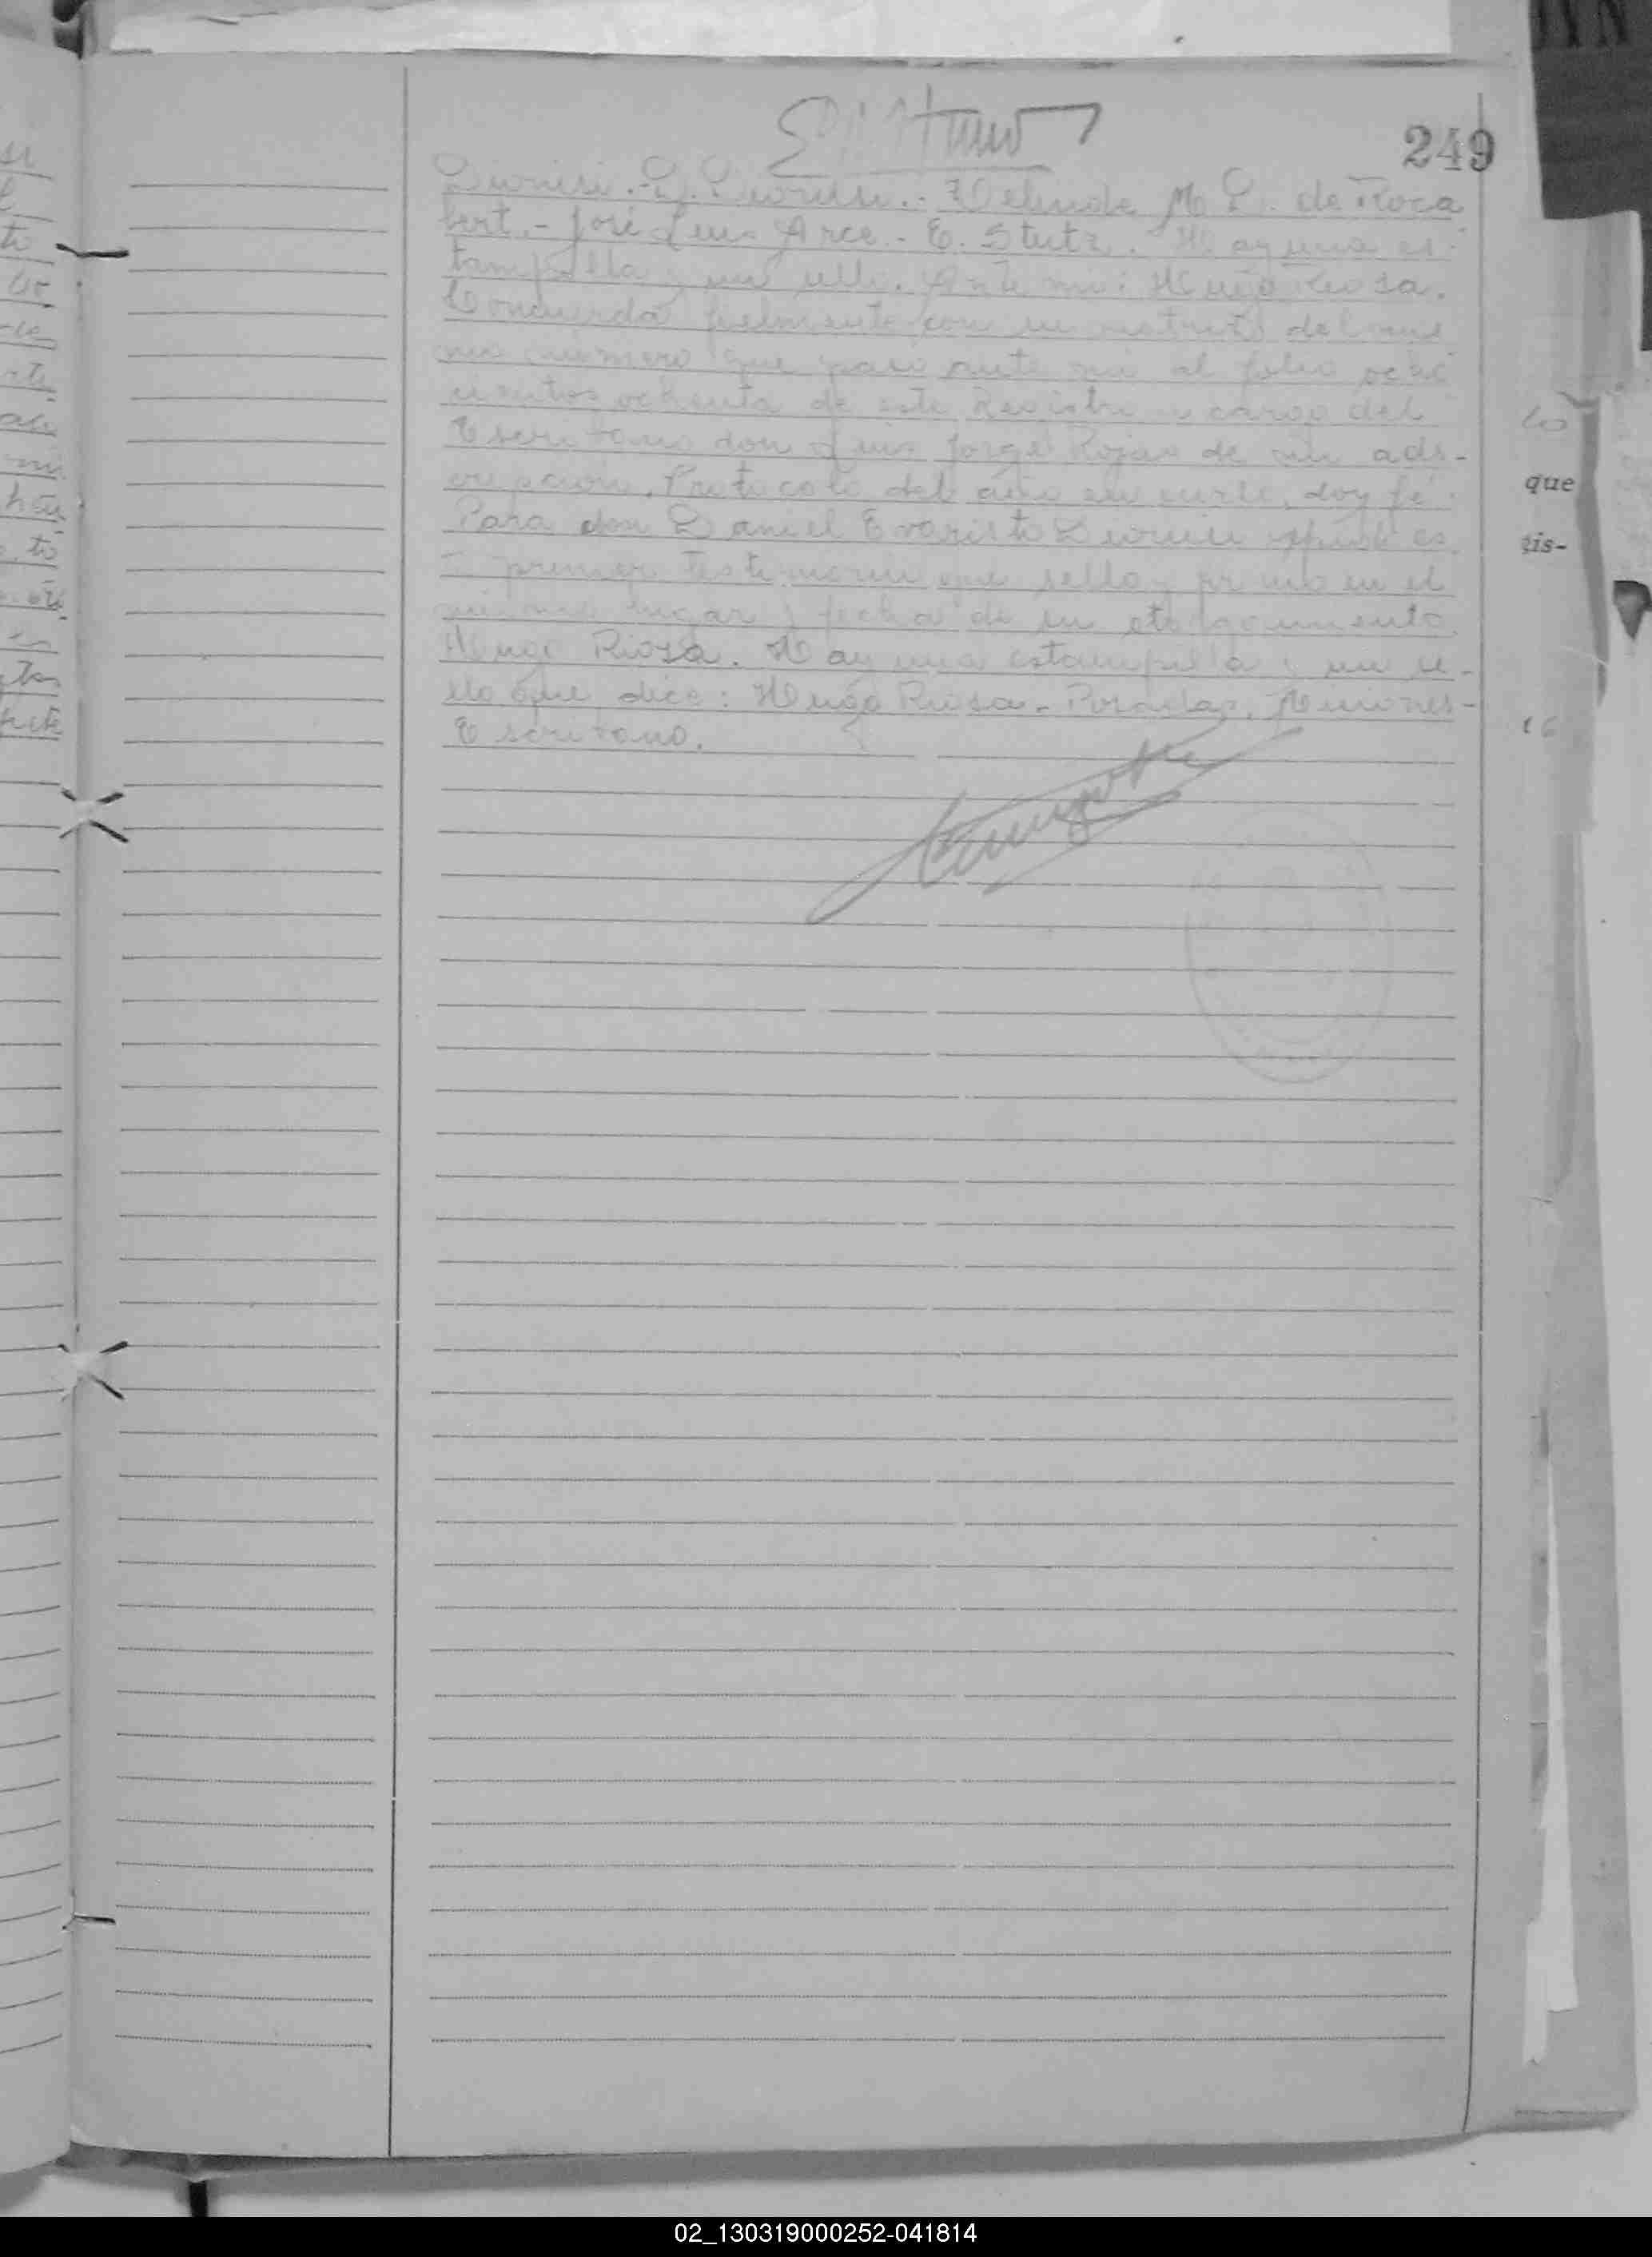 249
M. D. de Roca
bert.- José Luis Arce.- E. Stutz. Hay una es-
tampilla y un sello. Ante mi: Hugo Riosa.
Concuerda fielmente con su matriz del mis
mo número que pasó ante mi al folio ocho
cientos ochenta de este Registro a cargo del
Escribano don Luis Jorge Rojas de mi ads-
cripción, Protocolo del año en curso, doy fé.
Para don Daniel Evaristo expido es
te primer testimonio que sello y firmo en el
mismo lugar y fecha de su otorgamiento.
Hugo Riosa. Hay una estampilla y un se-
llo que dice: Hugo Riosa. Posadas, Misiones-
Escribano.
que
sis-
02_130319000252-041814